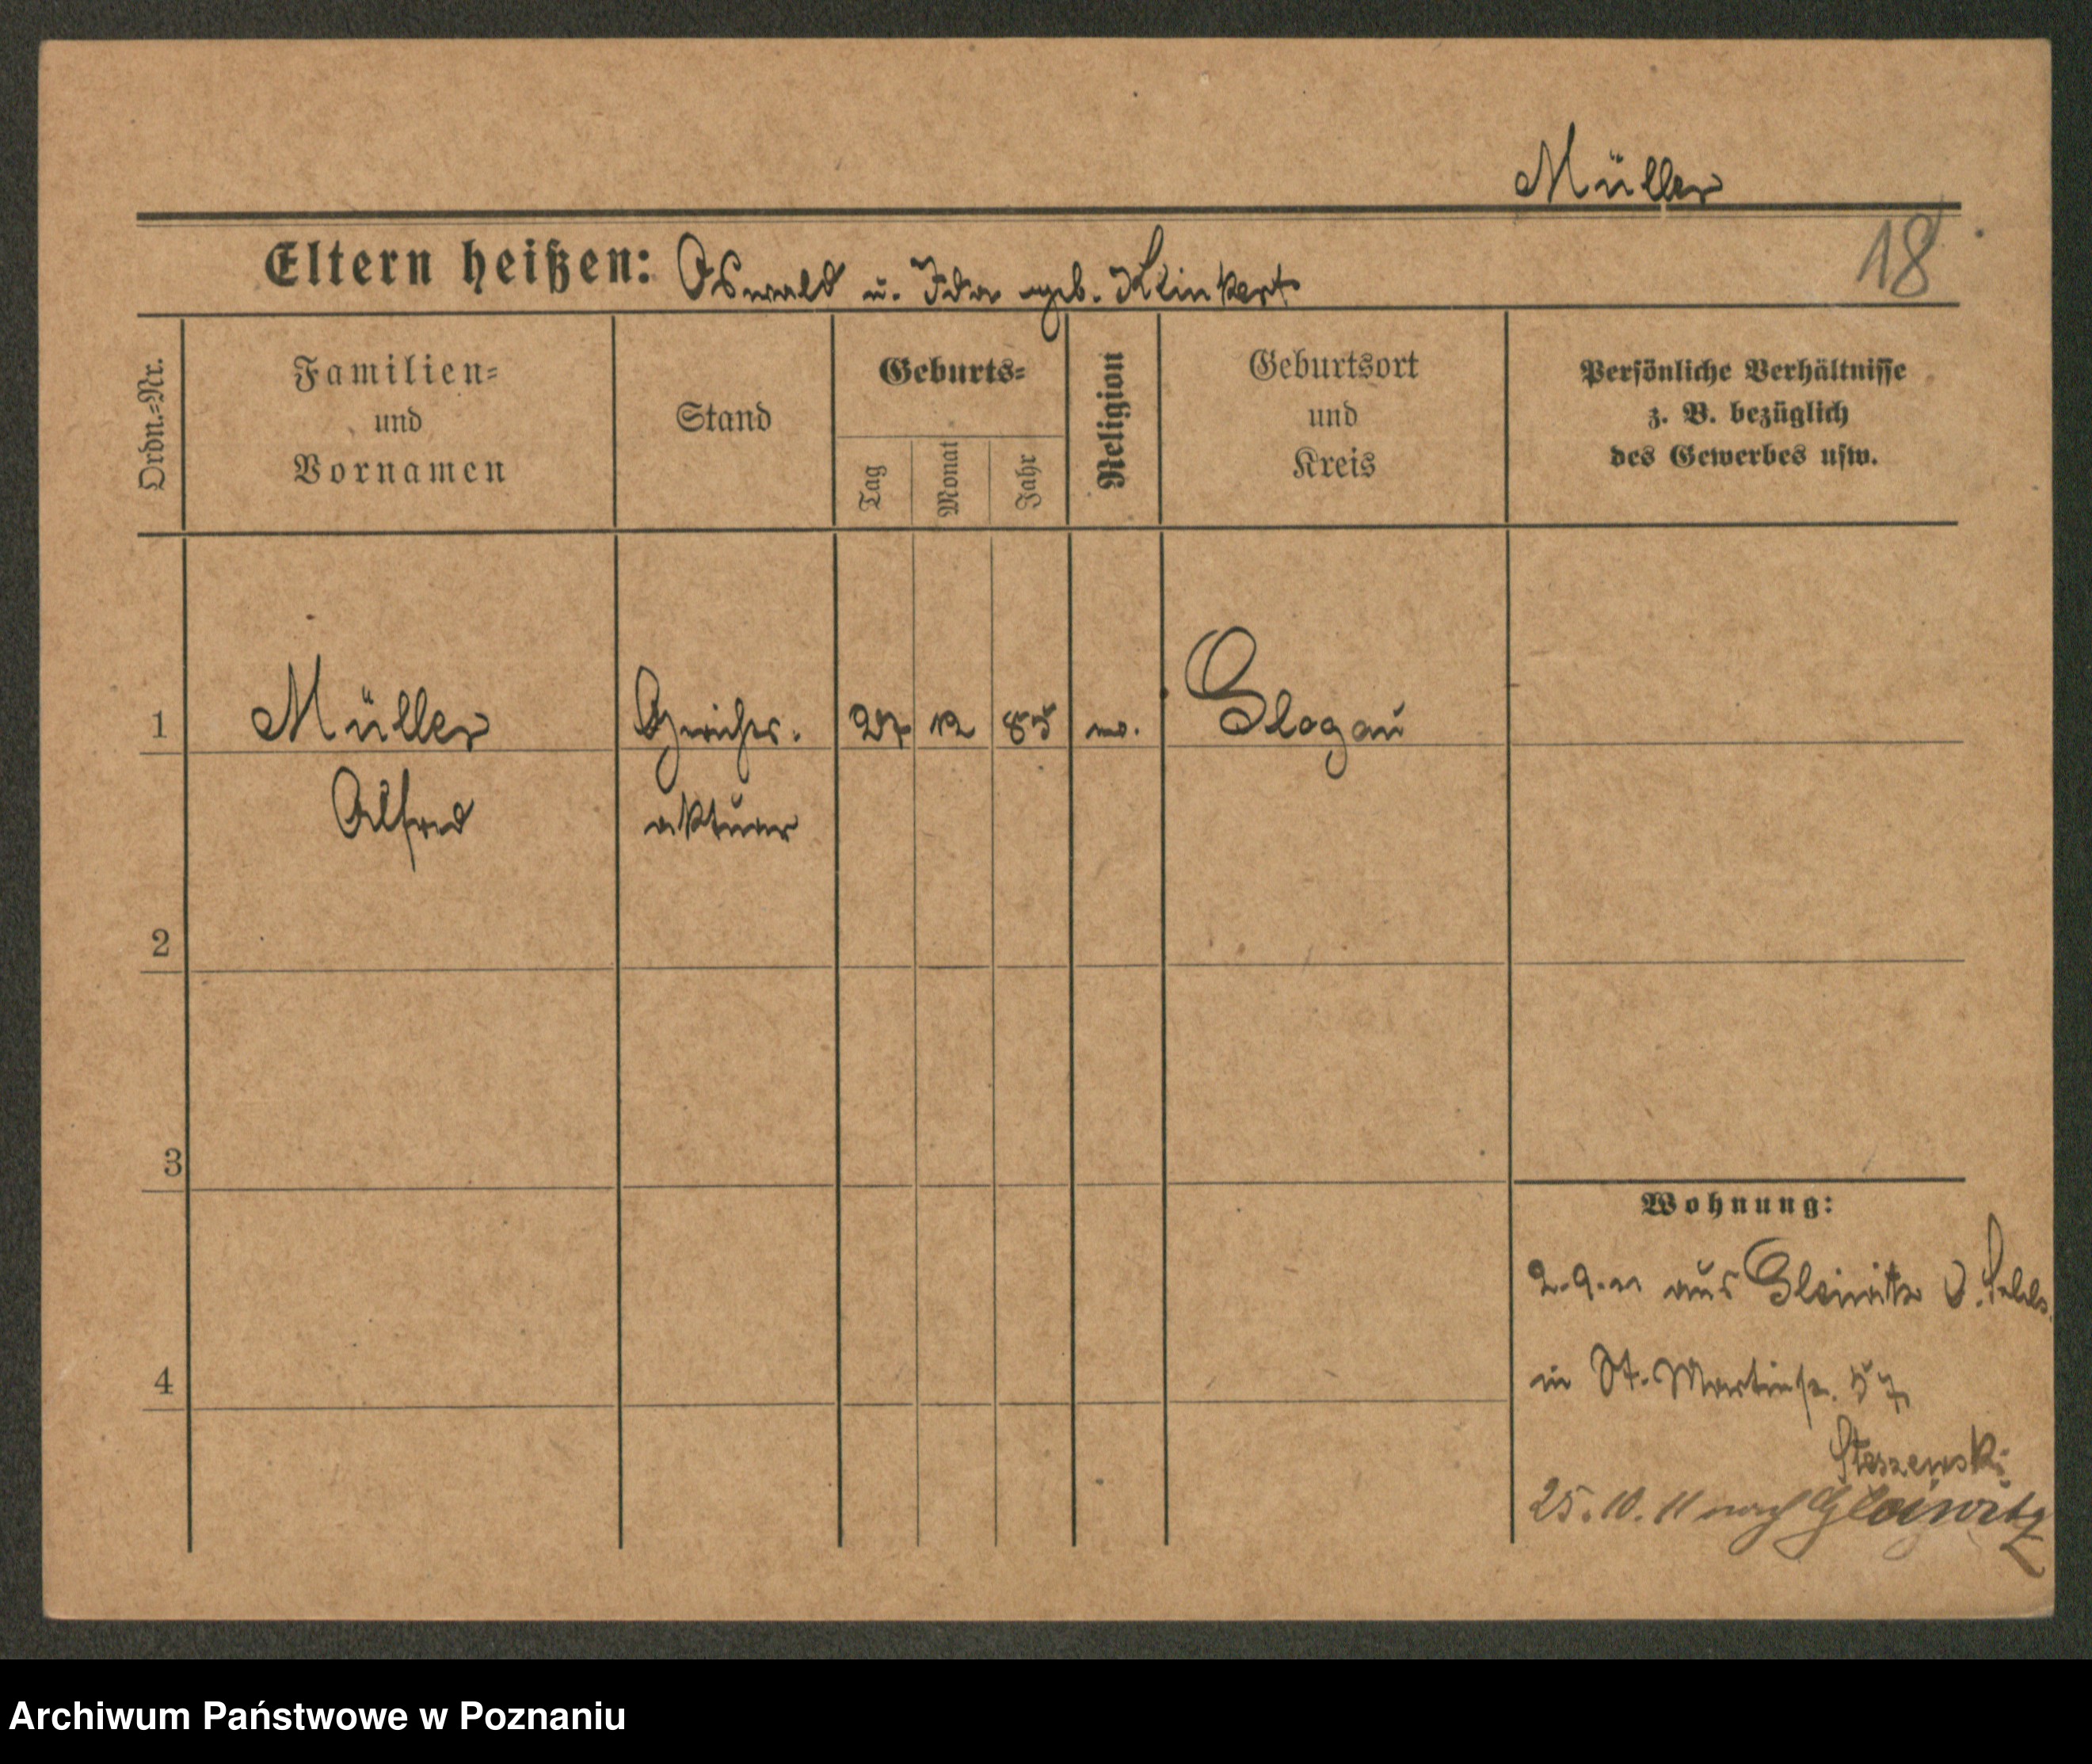 Müller
Eltern heißen: Oswald u. Ida geb. Klinkert
18
Ordn.=Nr.
Familien=
und
Vornamen
Stand
Geburts=
Tag
Monat
Jahr
Religion
Geburtsort
und
Kreis
Persönliche Verhältnisse
z. B. bezüglich
des Gewerbes usw.
1 Müller Gerichts. 27 12 85 ev. Glogau
Alfred aktuar
2
3
4
Wohnung:
2.9.11 aus Gleiwitz O. Schles.
in St. Martinstr. 57
Steszewski
25.10.11 nach Gleiwitz
Archiwum Państwowe w Poznaniu